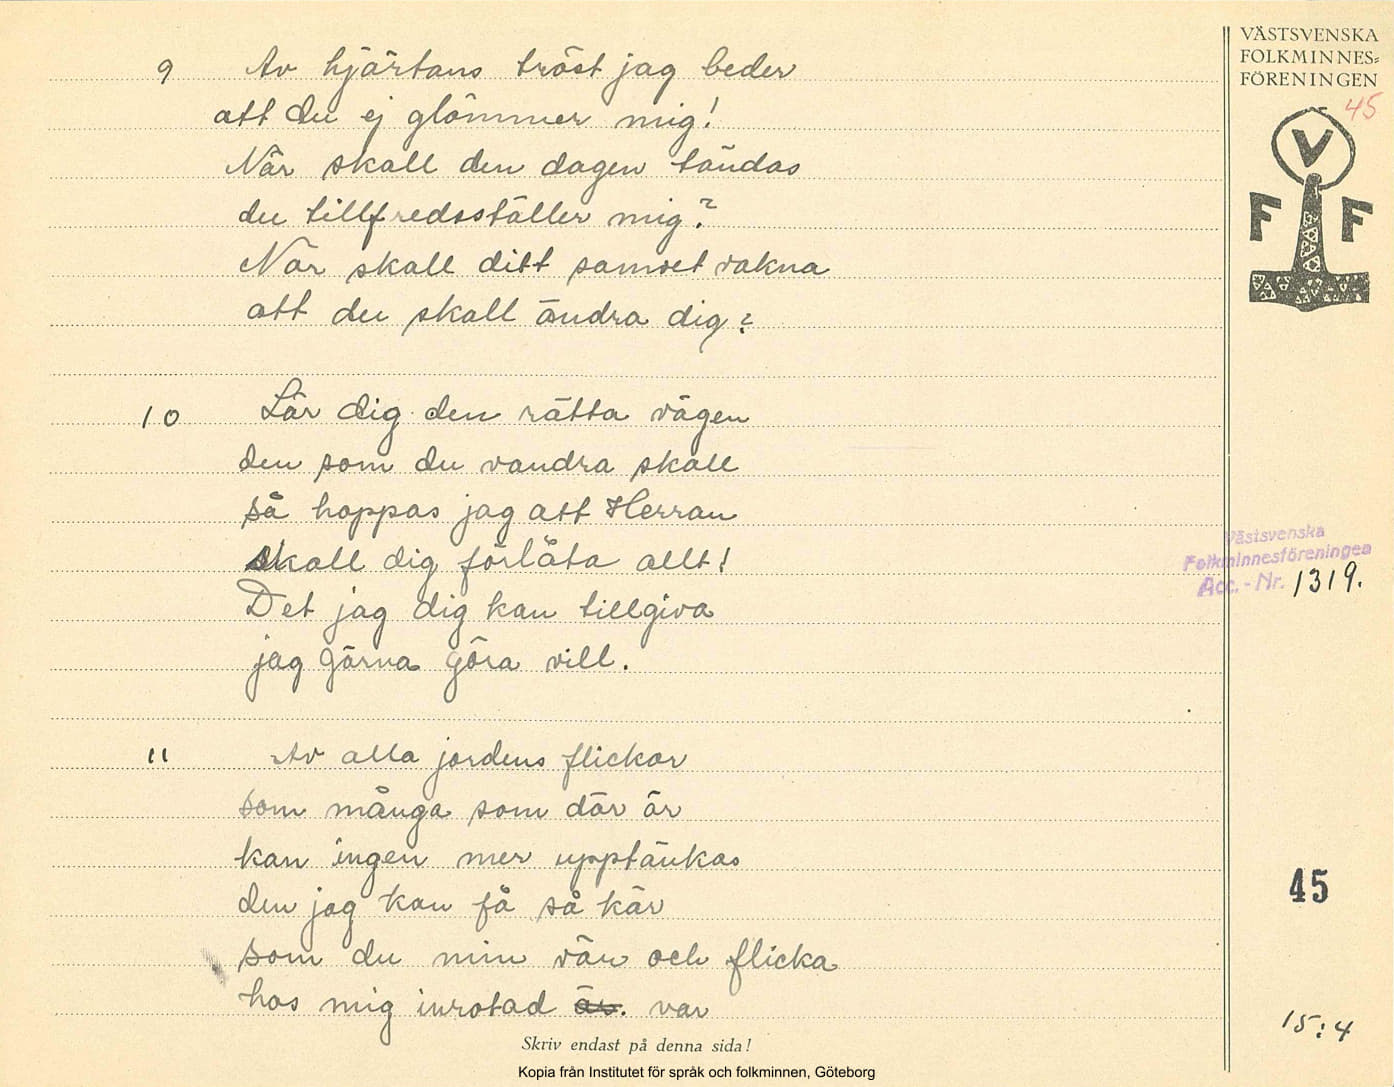 9 Av hjärtans tröst jag beder
att du ej glömmer mig!
När skall den dagen tändas
du tillfredsställer mig?
När skall ditt samvet vakna
att du skall ändra dig?
10 Lär dig den rätta vägen
den som du vandra skall
så hoppas jag att Herran
skall dig förlåta allt!
Det jag dig kan tillgiva
jag gärna göra vill.
11 Av alla jordens flickor
som många som där är
kan ingen mer upptänkas
den jag kan få så kär
som du min vän och flicka
hos mig inrotad är. var
Skriv endast på denna sida!
Kopia från Institutet för språk och folkminnen, Göteborg
VÄSTSVENSKA
FOLKMINNES-
FÖRENINGEN
45
V
F F
Västsvenska
Folkminnesföreningen
Acc.-Nr. 1319.
45
15:4